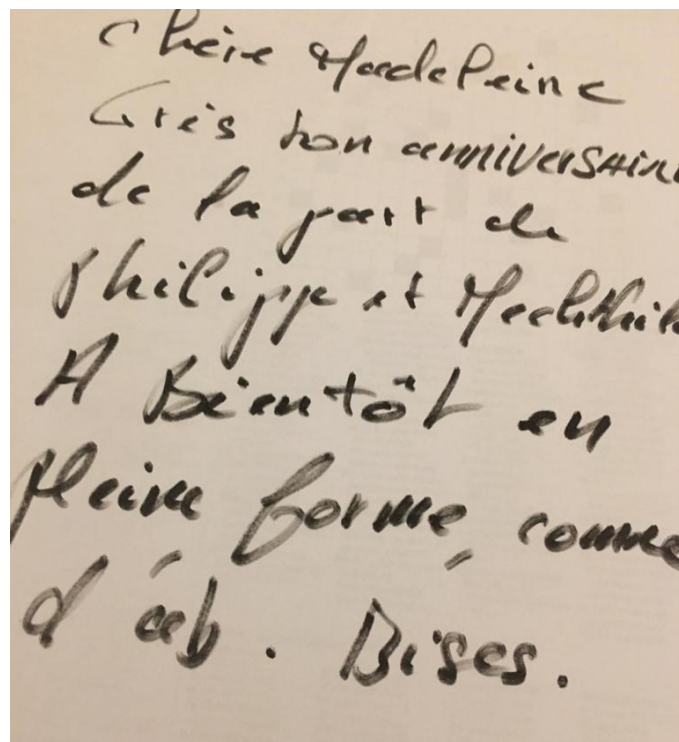 Chère Madeleine
Très bon anniversaire
de la part de
Philipp et Mechthil
A Bientôt en
pleine forme, comme
d'hab. Bises.